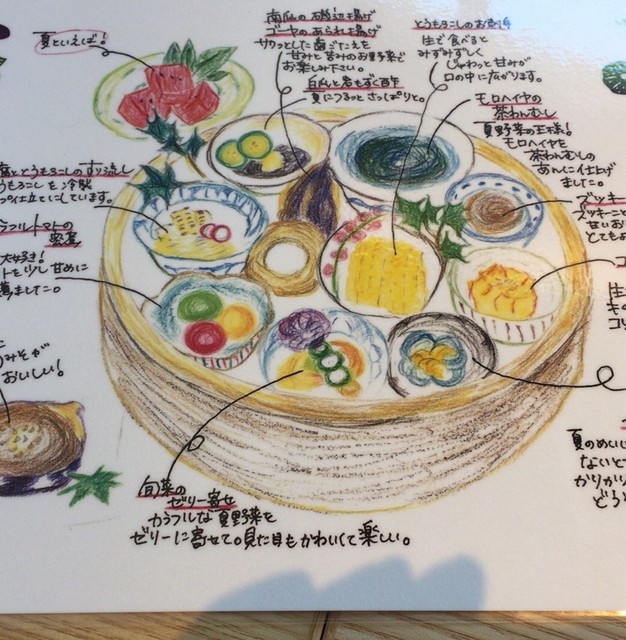 夏といえば!
南瓜の磯辺揚げ
ゴーヤのあられ揚げ
サクッとした歯ごたえを
甘みと苦みのお野菜で
お楽しみ下さい。
白瓜と岩もずく酢
夏につるっとさっぱりと。
とうもろこしのお造り
生で食べると
みずみずしく
じゅわっと甘みが
口の中に広がります。
モロヘイヤの
茶わんむし
夏野菜の王様!
モロヘイヤを
茶わんむしの
あんに仕上げ
ました。
とうもろこしのすり流し
うもろこしを冷製
プ仕立てにしています。
ラフルトマトの
大好き!
トを少し甘めに
ました。
みそが
おいしい!
ズッキー
ズッキーニと
甘いお
とても
コ
生
キの
コリ
旬菜の
ゼリー寄せ
カラフルな夏野菜を
ゼリーに寄せて。見た目もかわいくて楽しい。
夏のめい
ないと
かりかり
どう